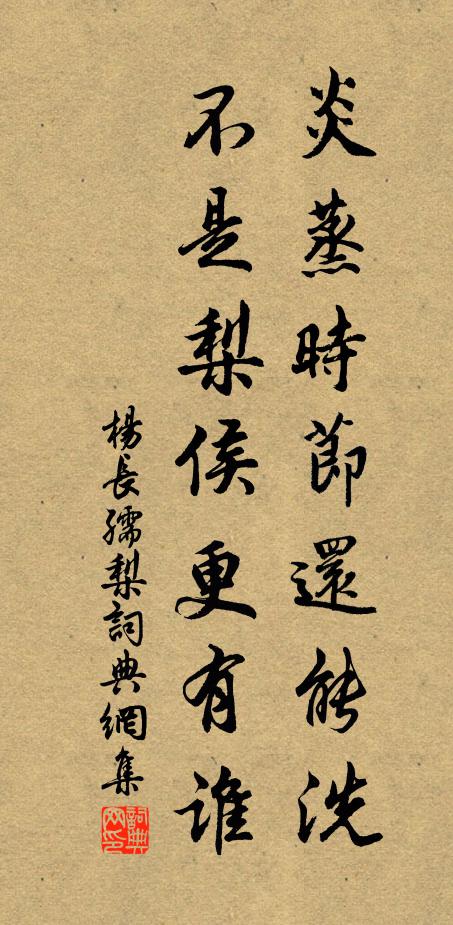 炎蒸時節還能洗
不是梨侯更有誰
楊長孺梨詞典網集
詞典網印